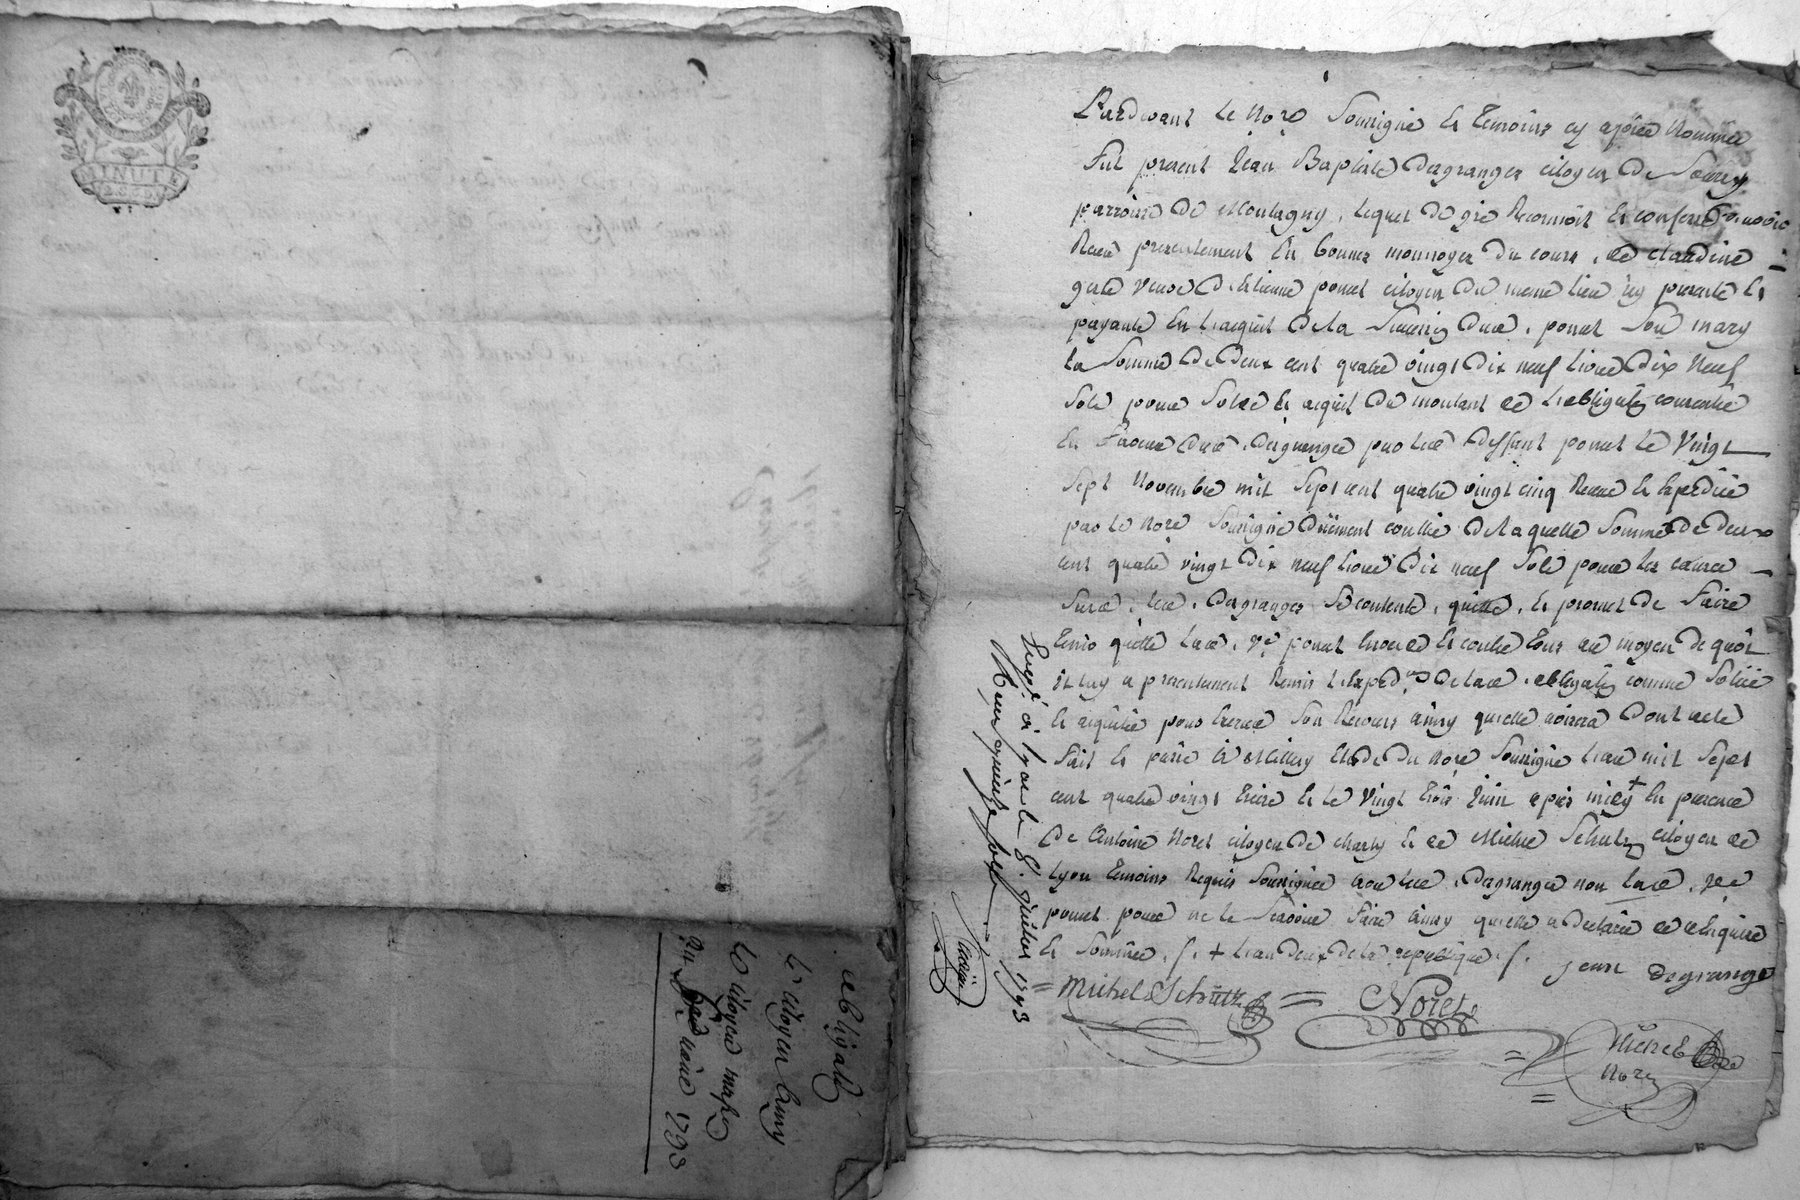 MINUTE
obligaōn
le citoyen
le citoyen
1793
Pardevant le nore soussigné et temoins cy après nommés
fut present Jean Baptiste Degranges citoyen de Sourzy
parroisse de Montagny, lequel de gré reconnoit et confesse avoir
receu presentement en bonnes monnoyes du cours, de claudine
veuve d'Etienne ponet citoyen du meme lieu icy presente et
payante en l'acquit de la d. ponet son mary
la somme de deux cent quatre vingt dix neuf livres dix neuf
sols pour solde et acquit du montant de l'obligaōn consentie
en faveur dud. Degranges par led. deffunt ponet le vingt
sept novembre mil sept cent quatre vingt cinq receue et expediée
par le nore soussigné düement de laquelle somme de deux
cent quatre vingt dix neuf livres dix neuf sols pour les causes
susd. led. Degranges se contente, quitte, et promet de faire
tenir quitte lad. ve ponet envers et contre tous au moyen de quoi
il luy a presentement remis l'expedon de lad. obligaōn comme solüe
et acquitée pour exercer son recours ainsy quelle avisera Dont acte
fait et passé à Millery etude du nore soussigné l'an mil sept
cent quatre vingt treize et le vingt trois Juin après midy + en presence
de Antoine Noret citoyen de charly et de Michel Schutz citoyen de
Lyon temoins requis soussignés avec led. Degranges non lad. ve
ponet pour ne le sçavoir faire ainsy quelle a declaré de ce enquise
et sommée. /. + l'an deux de la republique. /. jean degrange
Michel Schutz
Noret
Michel
Nore
à lyon le 8. juillet 1793